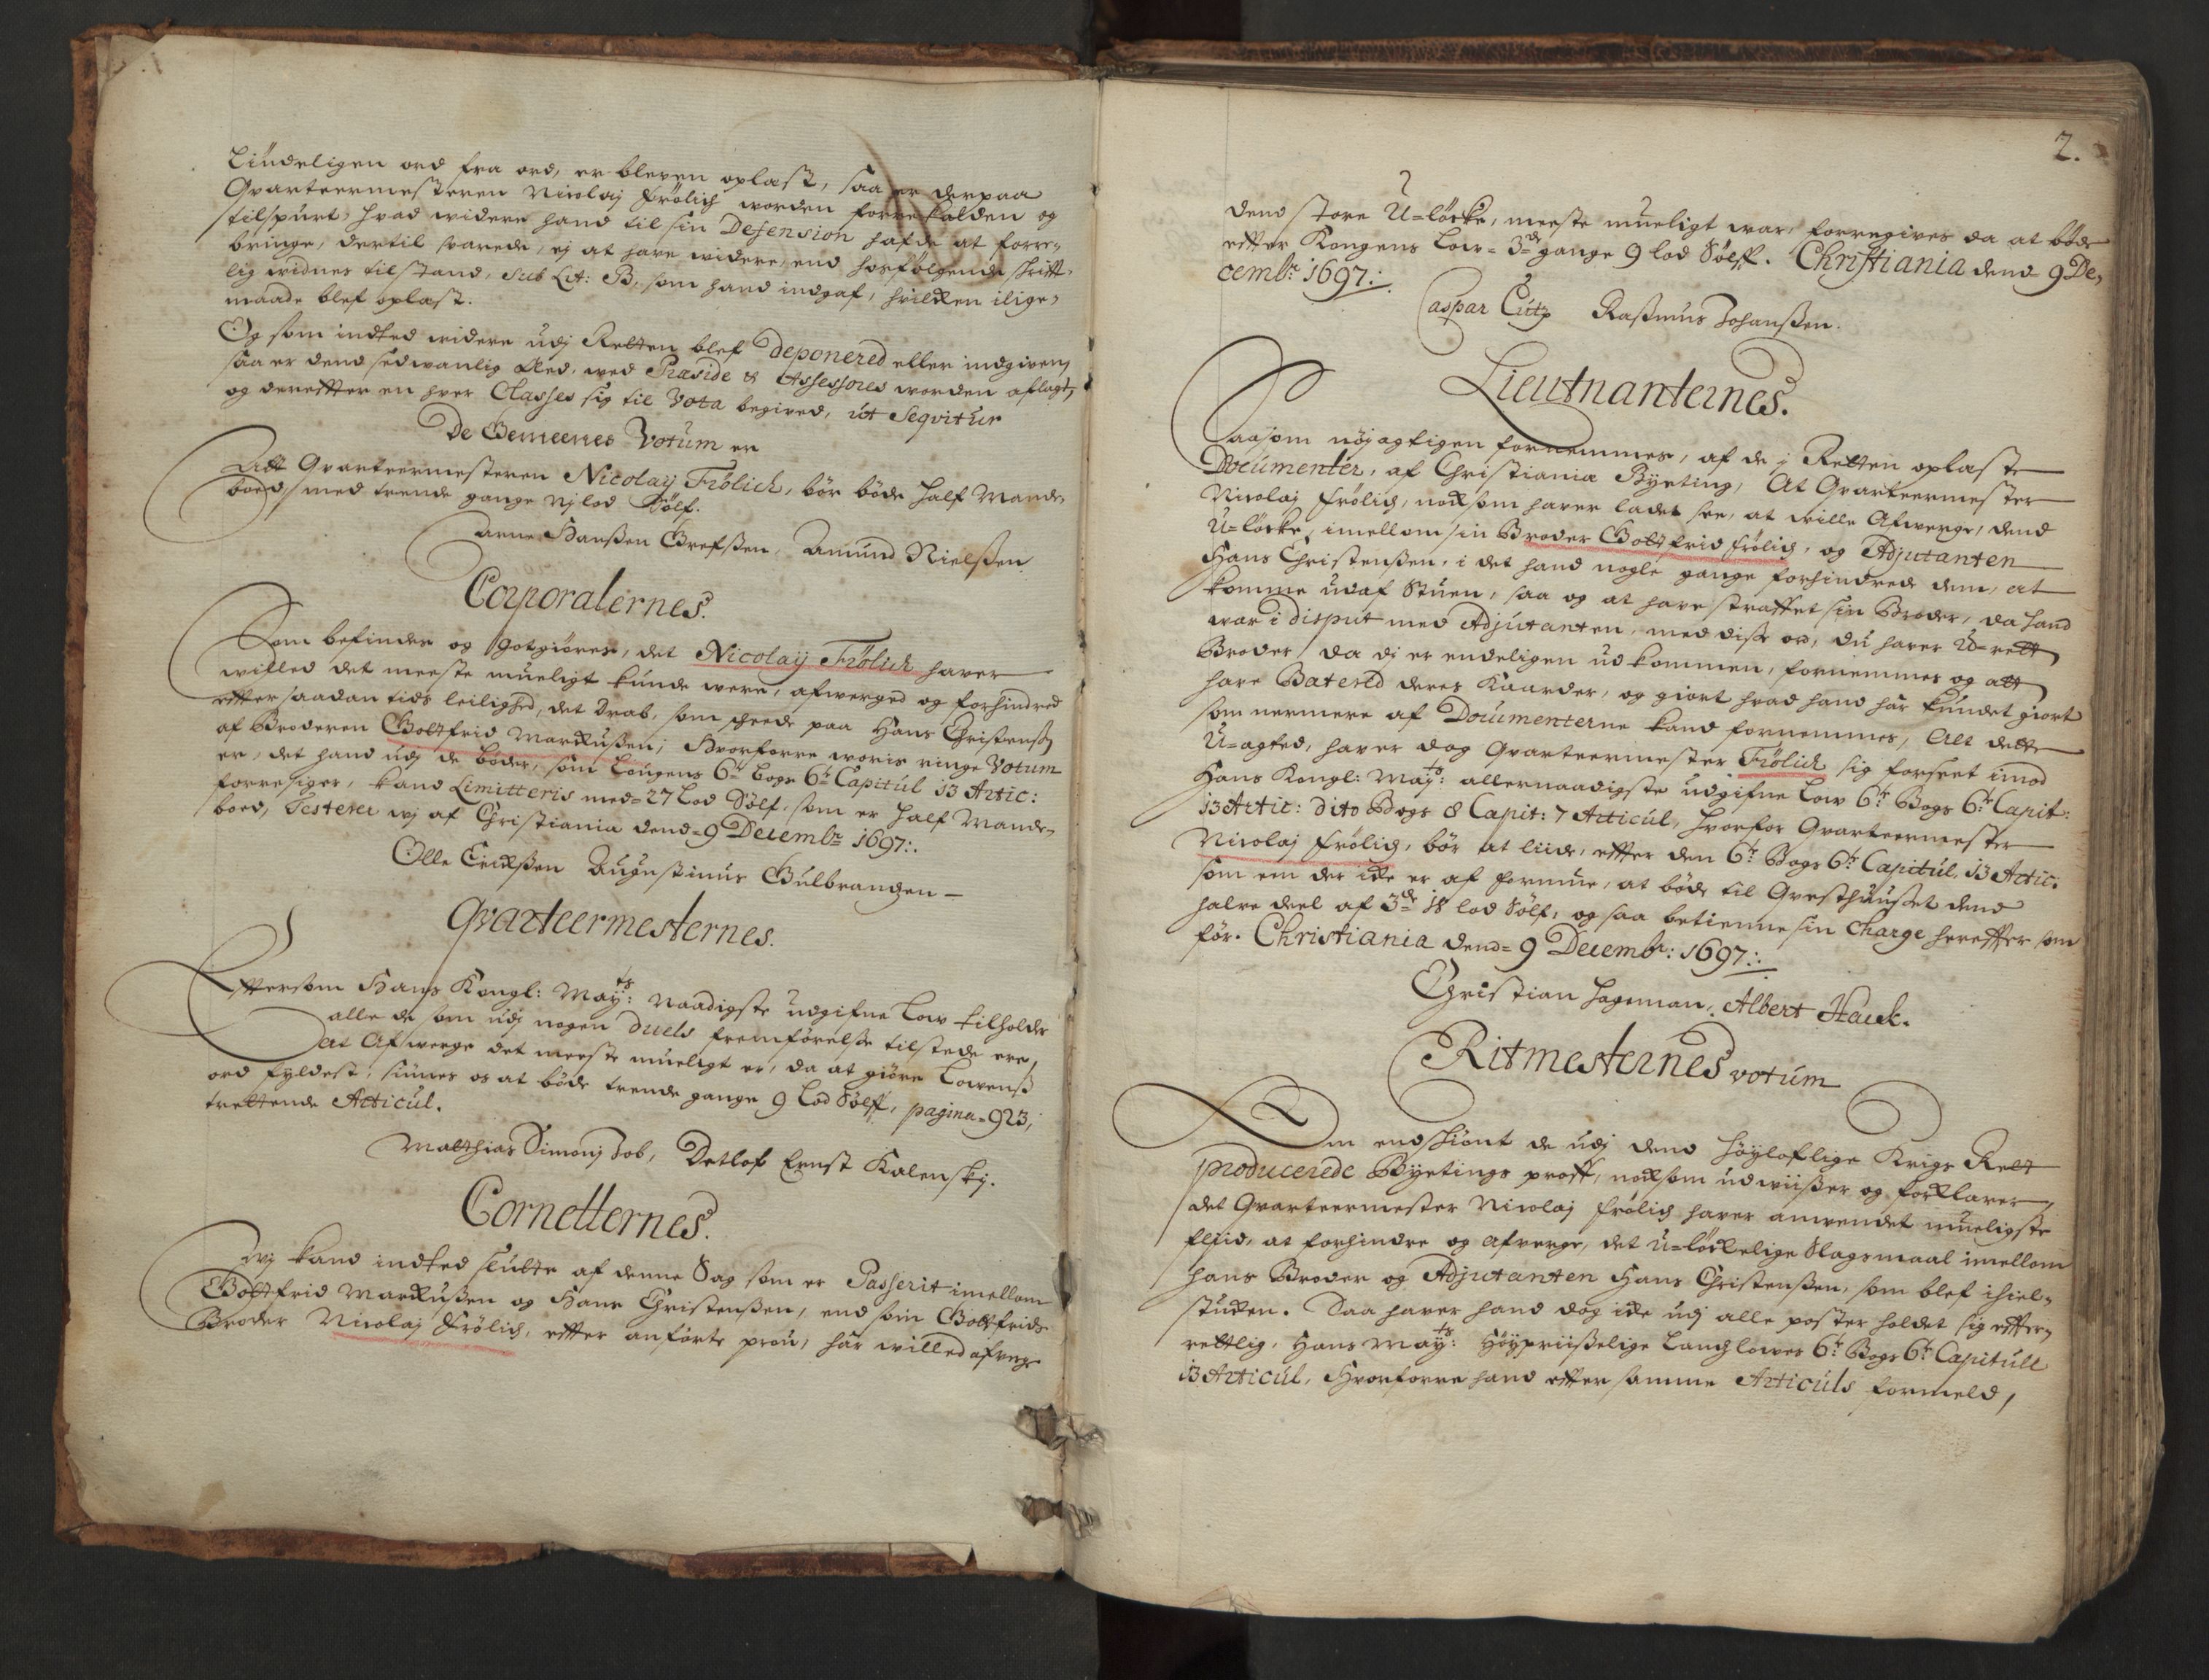 Liudeligen ord fra ord, er bleven oplæst, saa er derpaa
Qvarteermesteren Nicolaj Frölich worden forrekalden og
tilspurt, hvad widere hand til sin Defension hafde at forre-
bringe, dertil svarede, ej at have widere, end hosfølgende skrift-
lig widnes tilstand, sub Lit: B, som hand indgaf, hvilken ilige-
maade blef oplæst.
Og som indted widere udj Retten blef Deponered eller indgiven,
saa er dend sedwanlig Æed, wed Præside & Assessores worden aflagt,
og derefter en hver Classes sig til Vota begived, ut Seqvitur
De Gemeenes Votum er
Att Qvarteermesteren Nicolaij Frölich, bör böde half Mande-
boed, med trende gange Nj lod Sölf.
Arne Hanßen Grefßen, Amund Nielßen
Corporalernes.
Som befindes og godtgiöres, det Nicolaij Frölich haver
willed det meeste mueligt kunde were, afwerged og forhindred
efter saadan tids leilighed, det Drab, som skeede paa Hans Christenß:
af Broderen Gottfrid Markußen; Hvorforre woris ringe Votum
er, det hand udj de böder, som Lougens 6te Bogs 6te Capitul 13 Artic:
forresiger, kand Limitteris med=27 Lod Sölf, som er half Mande-
boed, Testerer wj af Christiania dend=9 Decembr 1697:.
Olle Erichßen Augustinus Gulbrandßen –
Qvarteermesternes.
Eftersom Hans Kongl: Mayts: Naadigste udgifne Low tilholder
alle de som udj nogen duels fremförelse tilstede ere,
at Afwerge det meeste mueligt er, da at giöre Lowenß
ord fyldest, siunes os at böde trende gange 9 Lod Sölf, pagina=923,
trettende Articul.
Matthias Simonj Job, Detlof Ernst Kalenskj.
Cornetternes.
Wj kand indted slutte af denne Sag som er Passerit imellom
Gottfrid Markußen og Hans Christenßen, end som Gottfrids
Broder Nicolaj Frölich, efter anförte prou, har willed afverge
2.
dend store U=löcke, meeste mueligt war, forregives da at böde
efter Kongens Low= 3de gange 9 lod Sölf. Christiania dend 9 De-
cembr 1697:.
Caspar Lutz Raßmus Johanßen.
Lieutnanternes.
Saasom nöjagtigen fornemmes, af de j Retten oplæste
Documenter, af Christiania Byeting, At Qvarteermester
Nicolaj Frölich, noksom haver ladet see, at wille Afwerge, dend
U=löcke, imellom sin Broder Gottfrid Frölich, og Adjutanten
Hans Christenßen, i det hand nogle gange forhindrede dem, at
komme udaf Stuen, saa og at have straffet sin Broder, da hand
war i disput med Adjutanten, med disse ord, du haver U=rett
Broder, da di er endeligen udkommen, fornemmes og att
have Batered deres Kaarder, og giort hvad hand har kundet giort
som nermere af Documenterne kand fornemmes, Alt dette
U=agted, haver dog Qvarteermester Frölich sig forseet imod
Hans Kongl: Mayts: allernaadigste udgifne Low 6te Bogs 6te Capit:
13 Artic: dito Bogs 8 Capit: 7 Articul, hvorfor Qvarteermester
Nicolaj Frölich, bör at liide, efter den 6te Bogs 6te Capitul, 13 Artic:
som een der icke er af formue, at böde til Qvesthuuset dend
halve deel af 3de 18 lod Sölf, og saa betienne sin Charge herefter som
för. Christiania dend=9 Decembr: 1697:.
Christian Hageman, Albert Hauck.
Ritmesternes votum
Om endskiönt de udj dend Höyloflige Krigs Rett
producerede Byetings proff, noksom udwiißer og forklarer,
det Qvarteermester Nicolaj Frölich haver anwendet mueligste
fliid, at forhindre og afverge, det u=löckelige Slagsmaal imellom
hans Broder og Adjutanten Hans Christenßen, som blef ihiel-
stucken. Saa haver hand dog icke udj alle poster holdet sig efter-
rettlig, Hans Mayts: Höypriißelige Lands lowes 6te Bogs 6te Capitull
13 Articul, Hvorforre hand efter samme Articuls formeld,